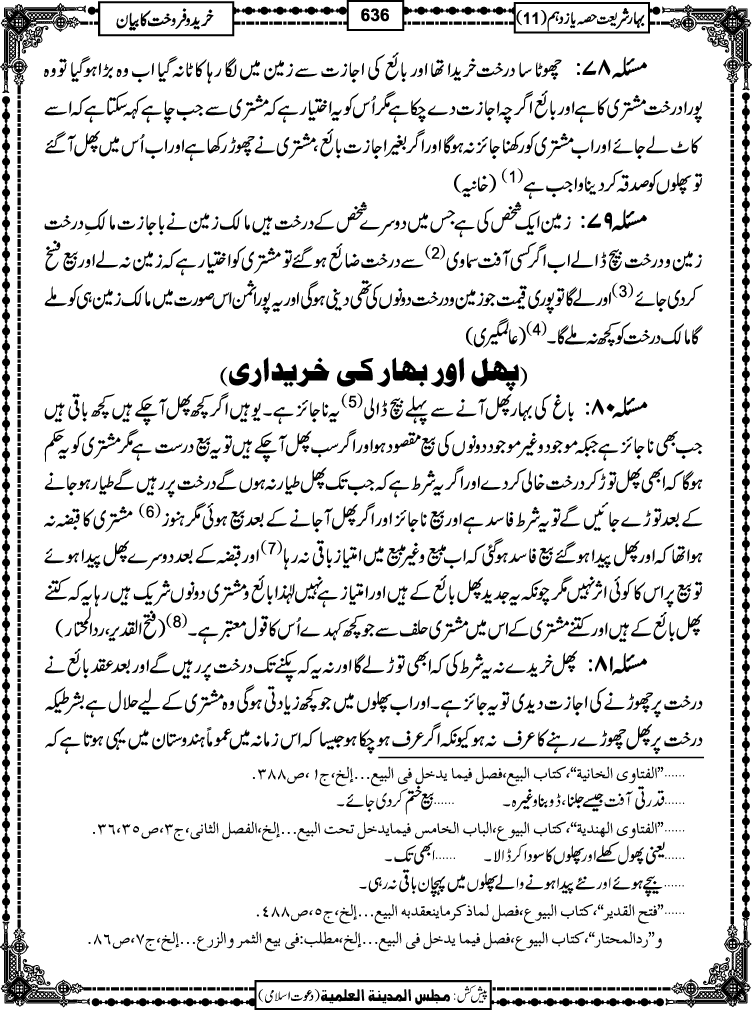 بہار شریعت حصہ یازدہم (11)
636
خرید و فروخت کا بیان
مسئلہ ۷۸: چھوٹا سا درخت خریدا تھا اور بائع کی اجازت سے زمین میں لگا رہا کاٹا نہ گیا اب وہ بڑا ہوگیا تو وہ
پورا درخت مشتری کا ہے اور بائع اگرچہ اجازت دے چکا ہے مگر اُس کو یہ اختیار ہے کہ مشتری سے جب چاہے کہہ سکتا ہے کہ اسے
کاٹ لے جائے اور اب مشتری کو رکھنا جائز نہ ہوگا اور اگر بغیر اجازت بائع، مشتری نے چھوڑ رکھا ہے اور اب اُس میں پھل آگئے
تو پھلوں کو صدقہ کردینا واجب ہے (1) (خانیہ)
مسئلہ ۷۹: زمین ایک شخص کی ہے جس میں دوسرے شخص کے درخت ہیں مالک زمین نے باجازت مالکِ درخت
زمین و درخت بیچ ڈالے اب اگر کسی آفت سماوی (2) سے درخت ضائع ہوگئے تو مشتری کو اختیار ہے کہ زمین نہ لے اور بیع فسخ
کردی جائے (3) اور لے گا تو پوری قیمت جو زمین و درخت دونوں کی تھی دینی ہوگی اور یہ پورا ثمن اس صورت میں مالک زمین ہی کو ملے
گا مالک درخت کو کچھ نہ ملے گا۔ (4) (عالمگیری)
(پھل اور بهار کی خریداری)
مسئلہ ۸۰: باغ کی بہار پھل آنے سے پہلے بیچ ڈالی (5) یہ ناجائز ہے۔ یوہیں اگر کچھ پھل آچکے ہیں کچھ باقی ہیں
جب بھی ناجائز ہے جبکہ موجود و غیر موجود دونوں کی بیع مقصود ہو اور اگر سب پھل آچکے ہیں تو یہ بیع درست ہے مگر مشتری کو یہ حکم
ہوگا کہ ابھی پھل توڑ کر درخت خالی کردے اور اگر یہ شرط ہے کہ جب تک پھل طیار نہ ہوں گے درخت پر رہیں گے طیار ہوجانے
کے بعد توڑے جائیں گے تو یہ شرط فاسد ہے اور بیع ناجائز اور اگر پھل آجانے کے بعد بیع ہوئی مگر ہنوز (6) مشتری کا قبضہ نہ
ہوا تھا کہ اور پھل پیدا ہوگئے بیع فاسد ہوگئی کہ اب مبیع و غیر مبیع میں امتیاز باقی نہ رہا (7) اور قبضہ کے بعد دوسرے پھل پیدا ہوئے
تو بیع پر اس کا کوئی اثر نہیں مگر چونکہ یہ جدید پھل بائع کے ہیں اور امتیاز ہے نہیں لہٰذا بائع و مشتری دونوں شریک ہیں رہا یہ کہ کتنے
پھل بائع کے ہیں اور کتنے مشتری کے اس میں مشتری حلف سے جو کچھ کہدے اُس کا قول معتبر ہے۔ (8) (فتح القدیر، ردالمحتار)
مسئلہ ۸۱: پھل خریدے نہ یہ شرط کی کہ ابھی توڑ لے گا اور نہ یہ کہ پکنے تک درخت پر رہیں گے اور بعد عقد بائع نے
درخت پر چھوڑنے کی اجازت دیدی تو یہ جائز ہے۔ اور اب پھلوں میں جو کچھ زیادتی ہوگی وہ مشتری کے لیے حلال ہے بشرطیکہ
درخت پر پھل چھوڑے رہنے کا عرف نہ ہو کیونکہ اگر عرف ہوچکا ہو جیسا کہ اس زمانہ میں عموماً ہندوستان میں یہی ہوتا ہے کہ
......"الفتاوی الخانیة"، کتاب البیع، فصل فیما یدخل فی البیع...إلخ، ج۱، ص۳۸۸.
......قدرتی آفت جیسے جلنا، ڈوبنا وغیرہ۔ ......بیع ختم کردی جائے۔
......"الفتاوی الهندیة"، کتاب البیوع، الباب الخامس فیما یدخل تحت البیع...إلخ، الفصل الثانی، ج۳، ص۳۵،۳۶.
......یعنی پھول کھلے اور پھلوں کا سودا کر ڈالا۔ ......ابھی تک۔
......بیچے ہوئے اور نئے پیدا ہونے والے پھلوں میں پہچان باقی نہ رہی۔
......"فتح القدیر"، کتاب البیوع، فصل لماذکر ماینعقد به البیع...إلخ، ج۵، ص۴۸۸.
و"ردالمحتار"، کتاب البیوع، فصل فیما یدخل فی البیع...إلخ، مطلب: فی بیع الثمر والزرع...إلخ، ج۷، ص۸۶.
پیش کش: مجلس المدینة العلمیة (دعوت اسلامی)